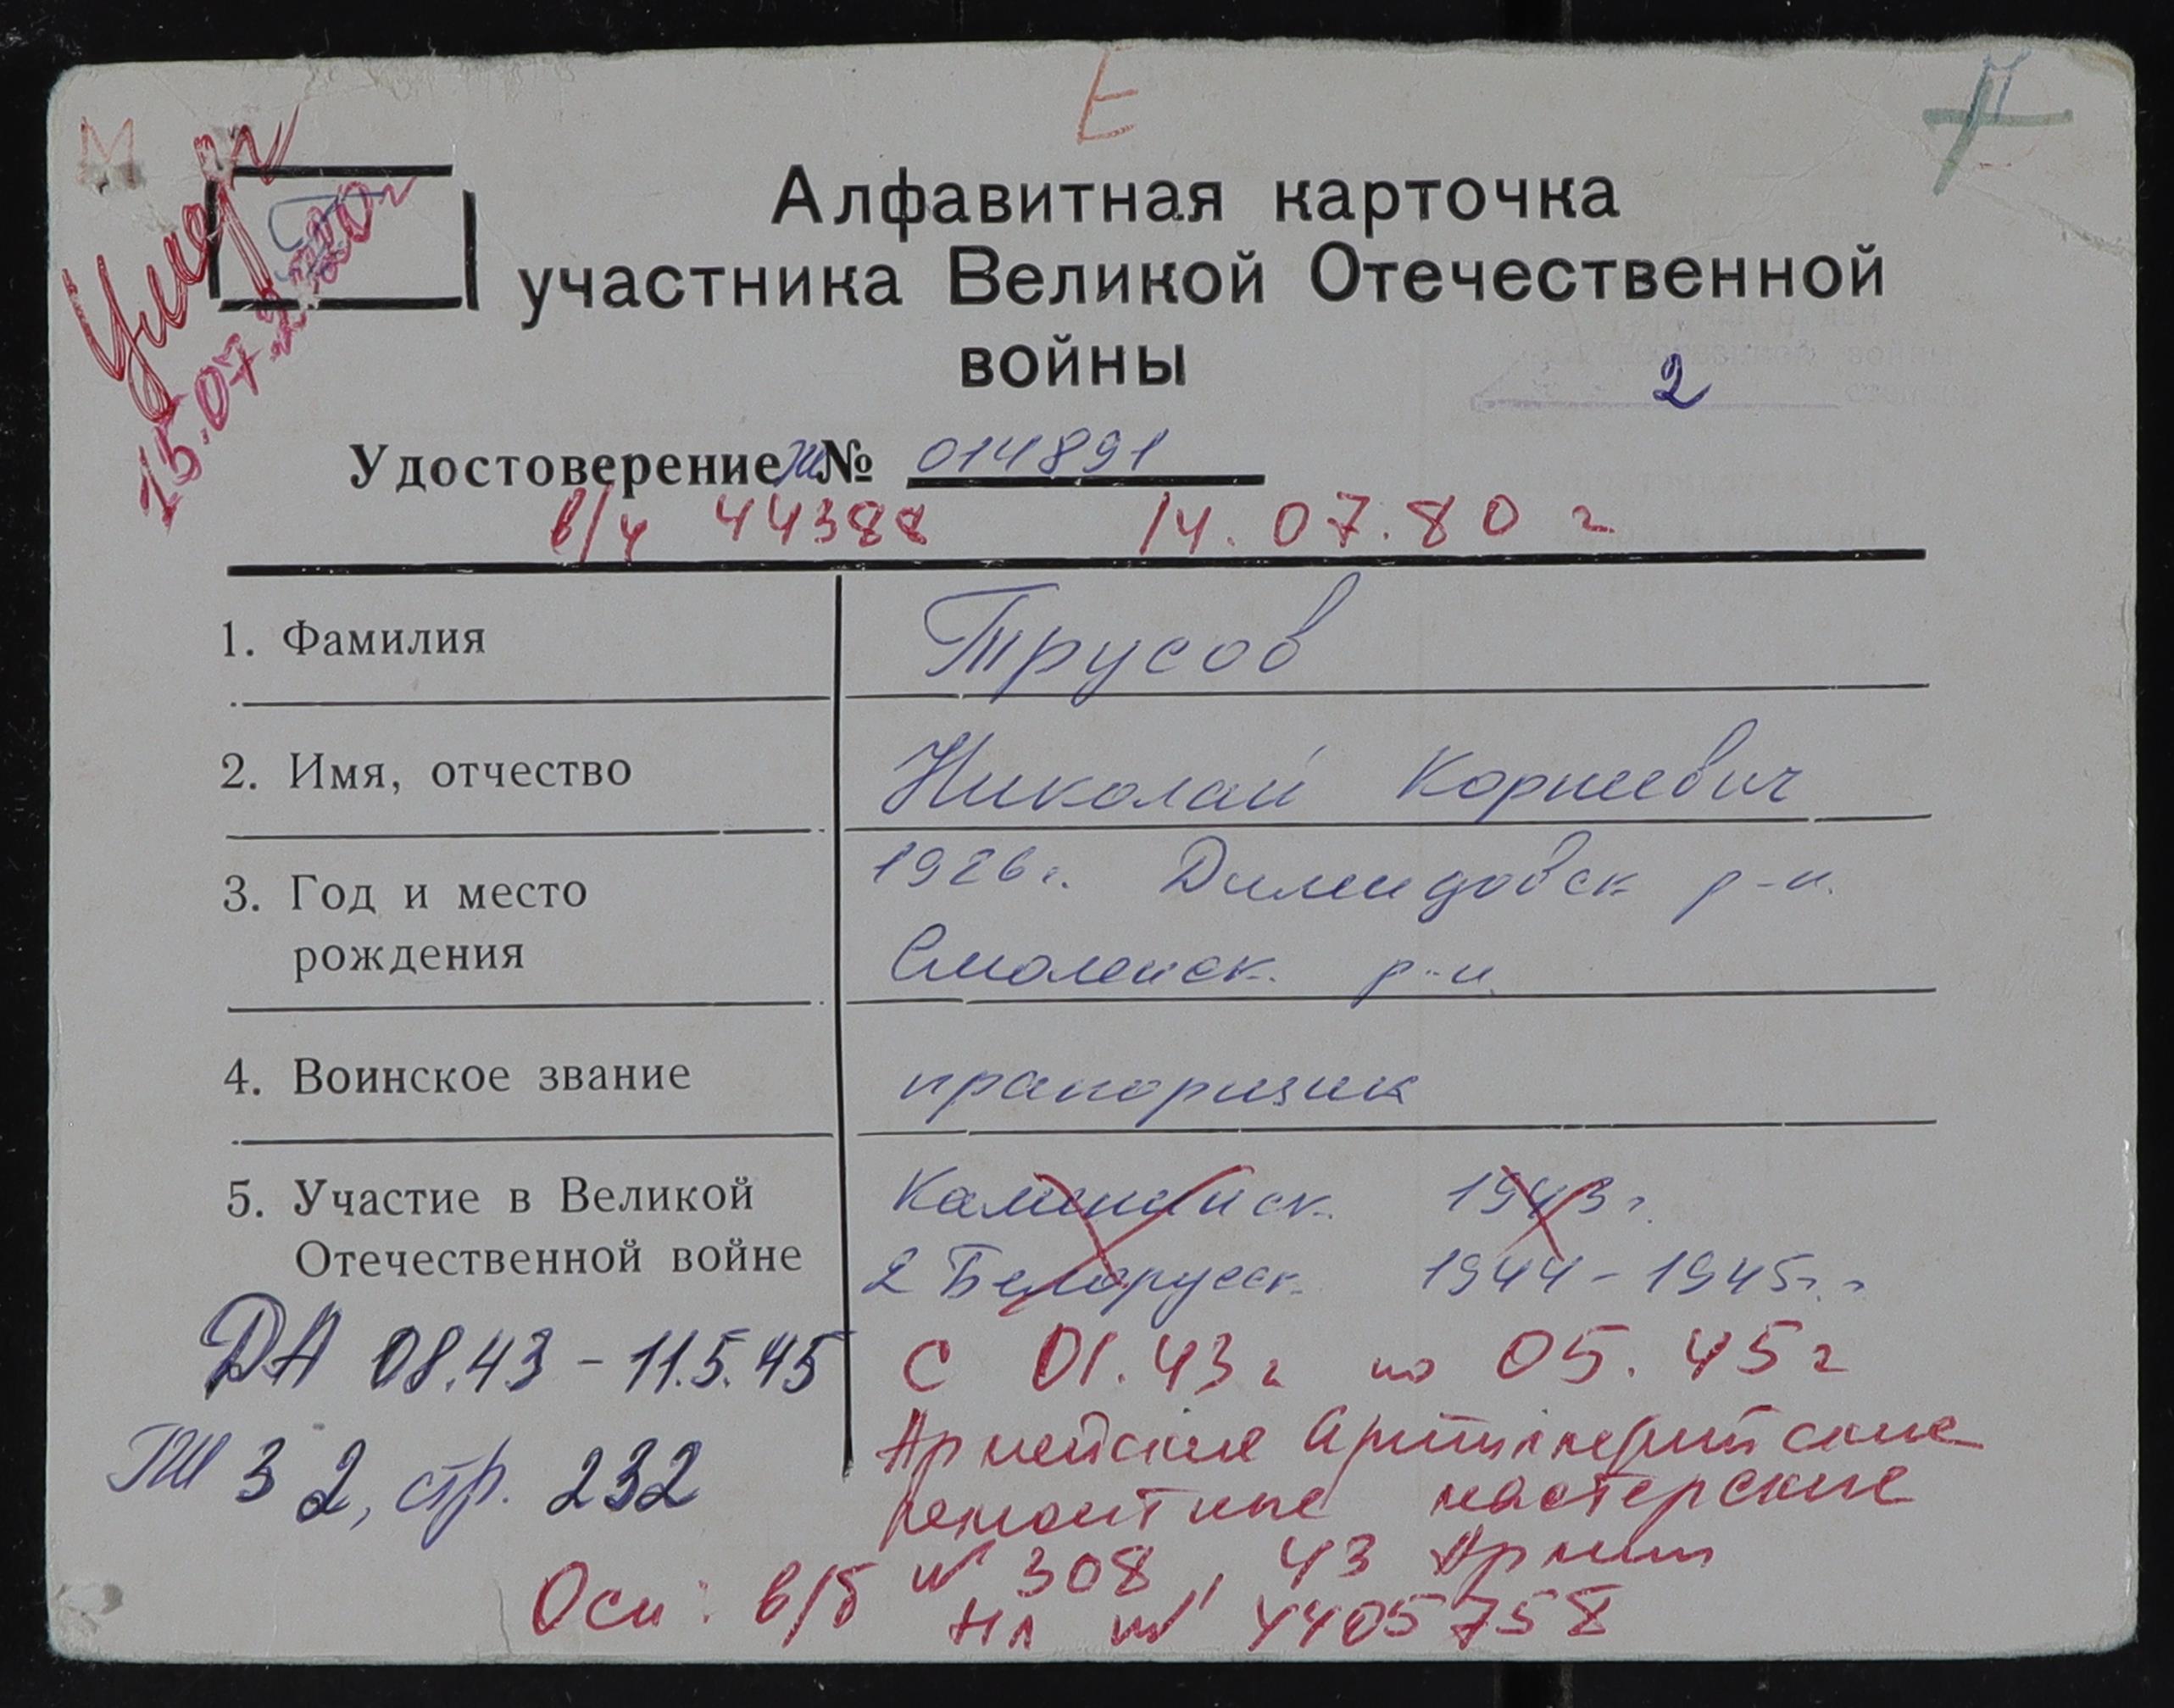 М
Е
Умер
15.07.2020г
Алфавитная карточка
участника Великой Отечественной
войны
2
Удостоверение № 014891
в/ч 44388 14.07.80 г
1. Фамилия Трусов
2. Имя, отчество Николай Корнеевич
3. Год и место рождения 1926г. Демидовск р-н.
Смоленск. р-н.
4. Воинское звание прапорщик
5. Участие в Великой Отечественной войне Калининск. 1943г.
2 Белорусск. 1944-1945г.г
ДА 08.43-11.5.45
с 01.43г по 05.45г
ГШ 3 2, стр. 232
Армейские артиллерийские
ремонтные мастерские
№ 308, 43 Армии
Осн: в/б НЛ № 4405758